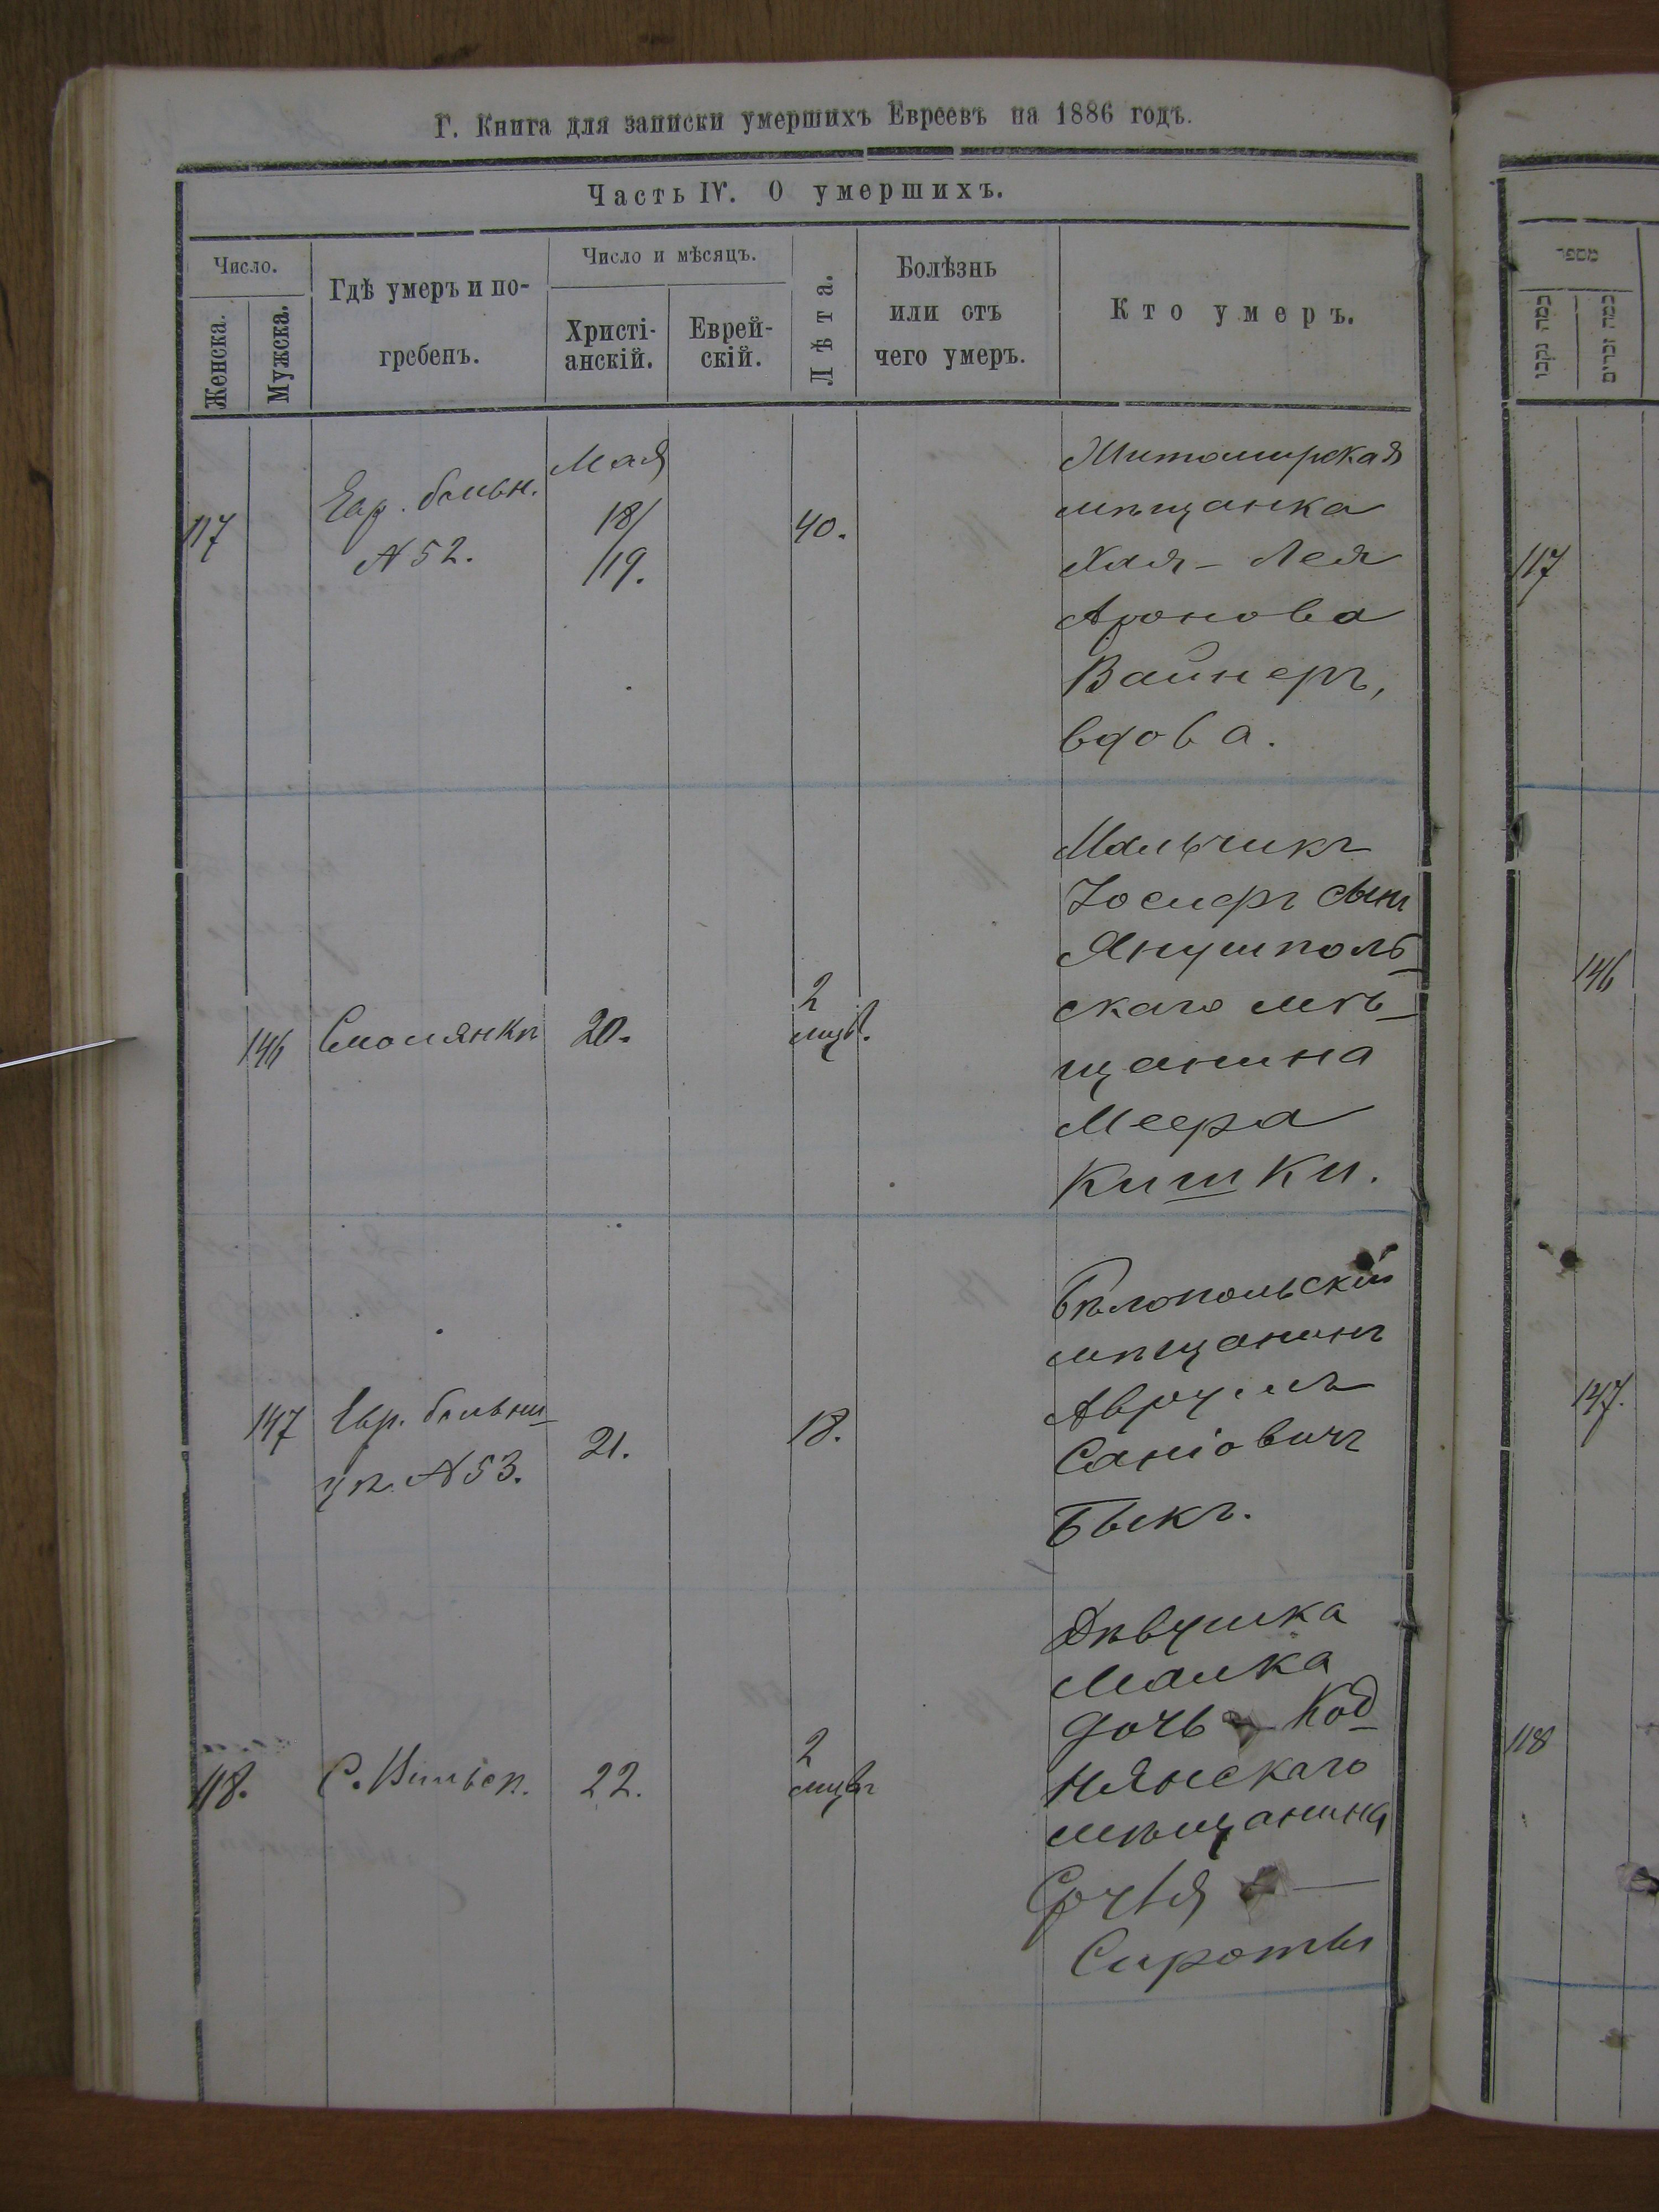 Г. Книга для записки умершихъ Евреевъ на 1886 годъ.
Часть IV. О умершихъ.
Число.
Женска.
Мужска.
Гдѣ умеръ и по-
гребенъ.
Число и мѣсяцъ.
Христі-
анскій.
Еврей-
скій.
Лѣта.
Болѣзнь
или отъ
чего умеръ.
Кто умеръ.
117
Евр. больн.
№ 52.
Мая
18/
/19.
40.
Житомирская
мѣщанка
Хая-Лея
Аронова
Вайнеръ,
вдова.
146
Смолянкѣ
20.
2
мцв.
Мальчикъ
Іосифъ сынъ
Янушполь-
скаго мѣ-
щанина
Меера
Кишки.
147
Евр. больни-
цѣ № 53.
21.
18.
Бѣлопольскій
мѣщанинъ
Аврумъ
Саніовичъ
Быкъ.
118.
С.
22.
2
мцвъ
Дѣвушка
Малка
дочь Код-
нянскаго
мѣщанина
Сруля
Сироты
117
146
147.
118
כפסי